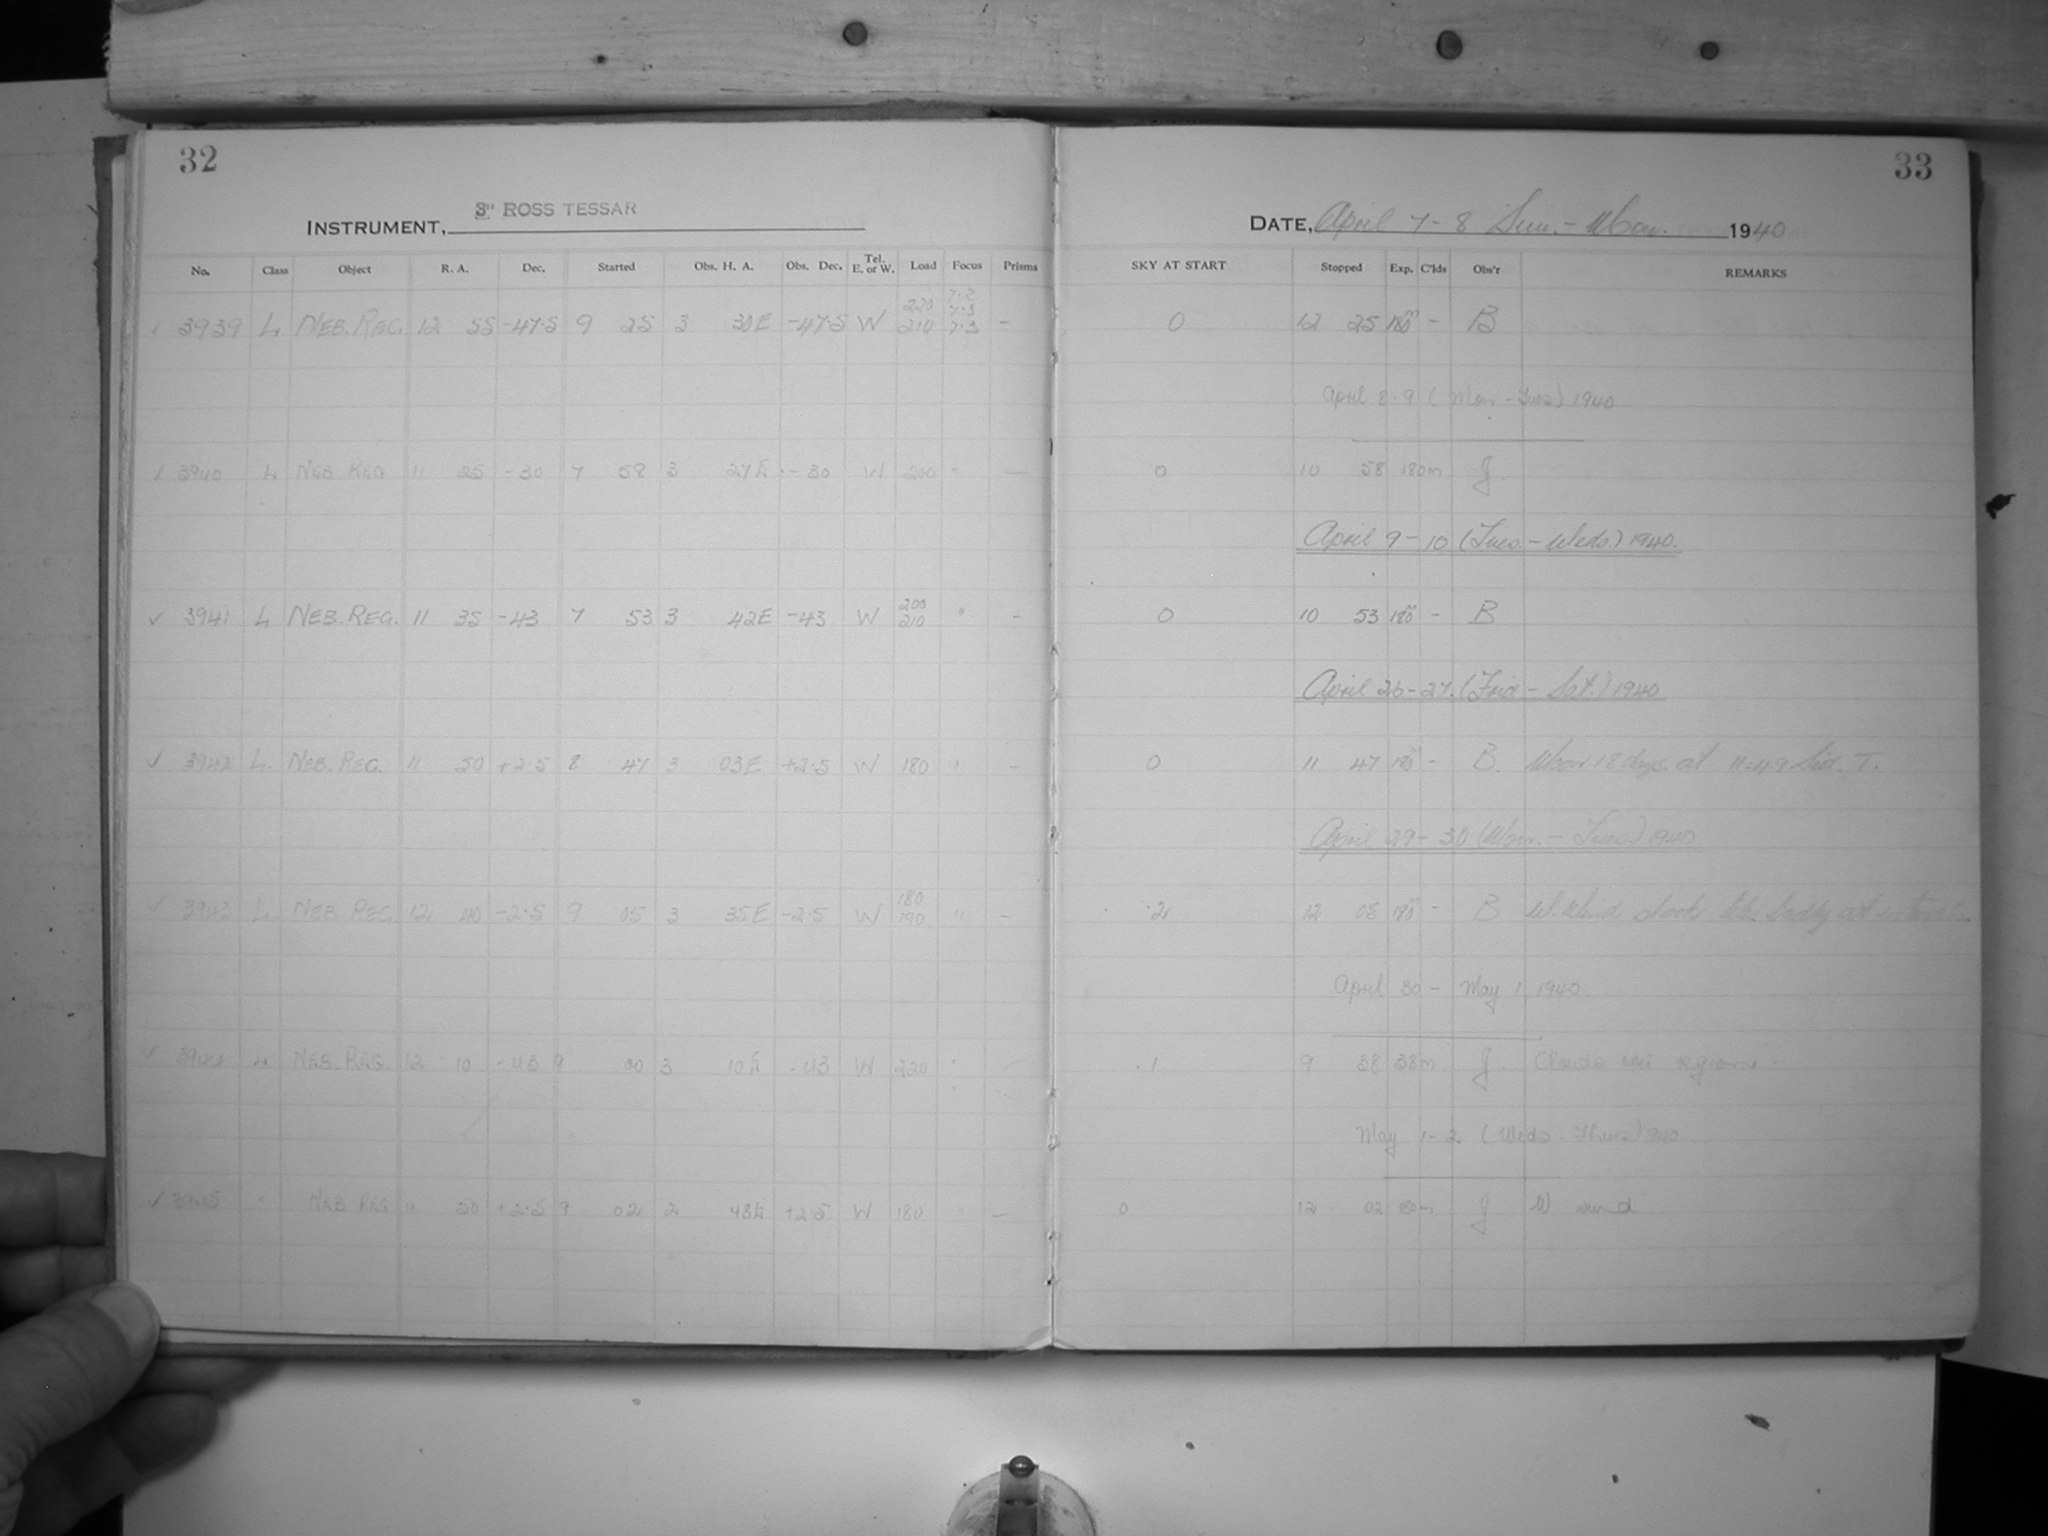 32
33
INSTRUMENT, 3" ROSS TESSAR
DATE, April 7-8 Sun.-Mon. 1940
No. Class Object R. A. Dec. Started Obs. H. A. Obs. Dec. Tel. E. or W. Load Focus Prisms SKY AT START Stopped Exp. C'lds Obs'r REMARKS
✓ 3939 L NEB. REG. 12 55 -47.5 9 25 3 30E -47.5 W 220 210 7.2 7.3 7.3 - 0 12 25 180m - B
April 8-9 (Mon-Tues) 1940
✓ 3940 L NEB. REG 11 25 -30 7 58 3 27E -30 W 200 " - 0 10 58 180m J
April 9-10 (Tues.-Weds.) 1940.
✓ 3941 L NEB. REG. 11 35 -43 7 53 3 42E -43 W 200 210 " - 0 10 53 180m - B
April 26-27. (Frid-Sat.) 1940
✓ 3942 L. NEB. REG. 11 50 +2.5 8 47 3 03E +2.5 W 180 " - 0 11 47 180m - B. Moon 18 days at 11.49 Sid. T.
April 29-30 (Mon.-Tues.) 1940
✓ 3943 L NEB. REG. 12 40 -2.5 9 05 3 35E -2.5 W 180 190 " - 2 12 05 180m - B W. Wind shook badly at
April 30 - May 1, 1940
✓ 3944 L NEB. REG 12 10 -43 9 00 3 10E -43 W 220 " - 1 9 38 38m J. Clouds over region
May 1-2 (Weds-Thurs) 1940
✓ 3945 " NEB REG 11 50 +2.5 9 02 2 48E +2.5 W 180 " - 0 12 02 180m J W wind